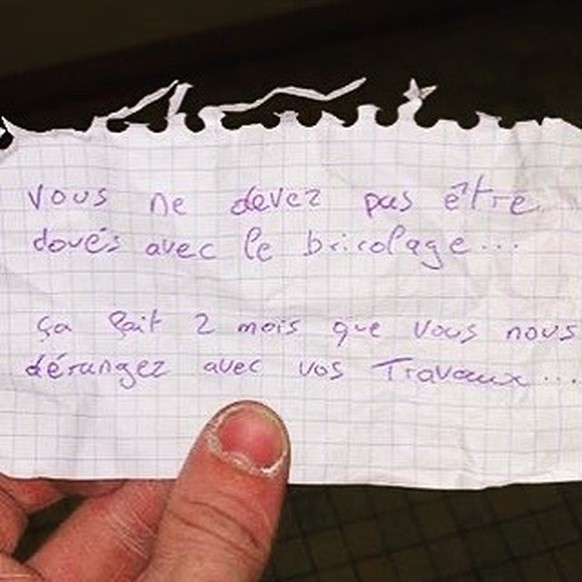 Vous ne devez pas être
doués avec le bricolage...
ça fait 2 mois que vous nous
dérangez avec vos Travaux...